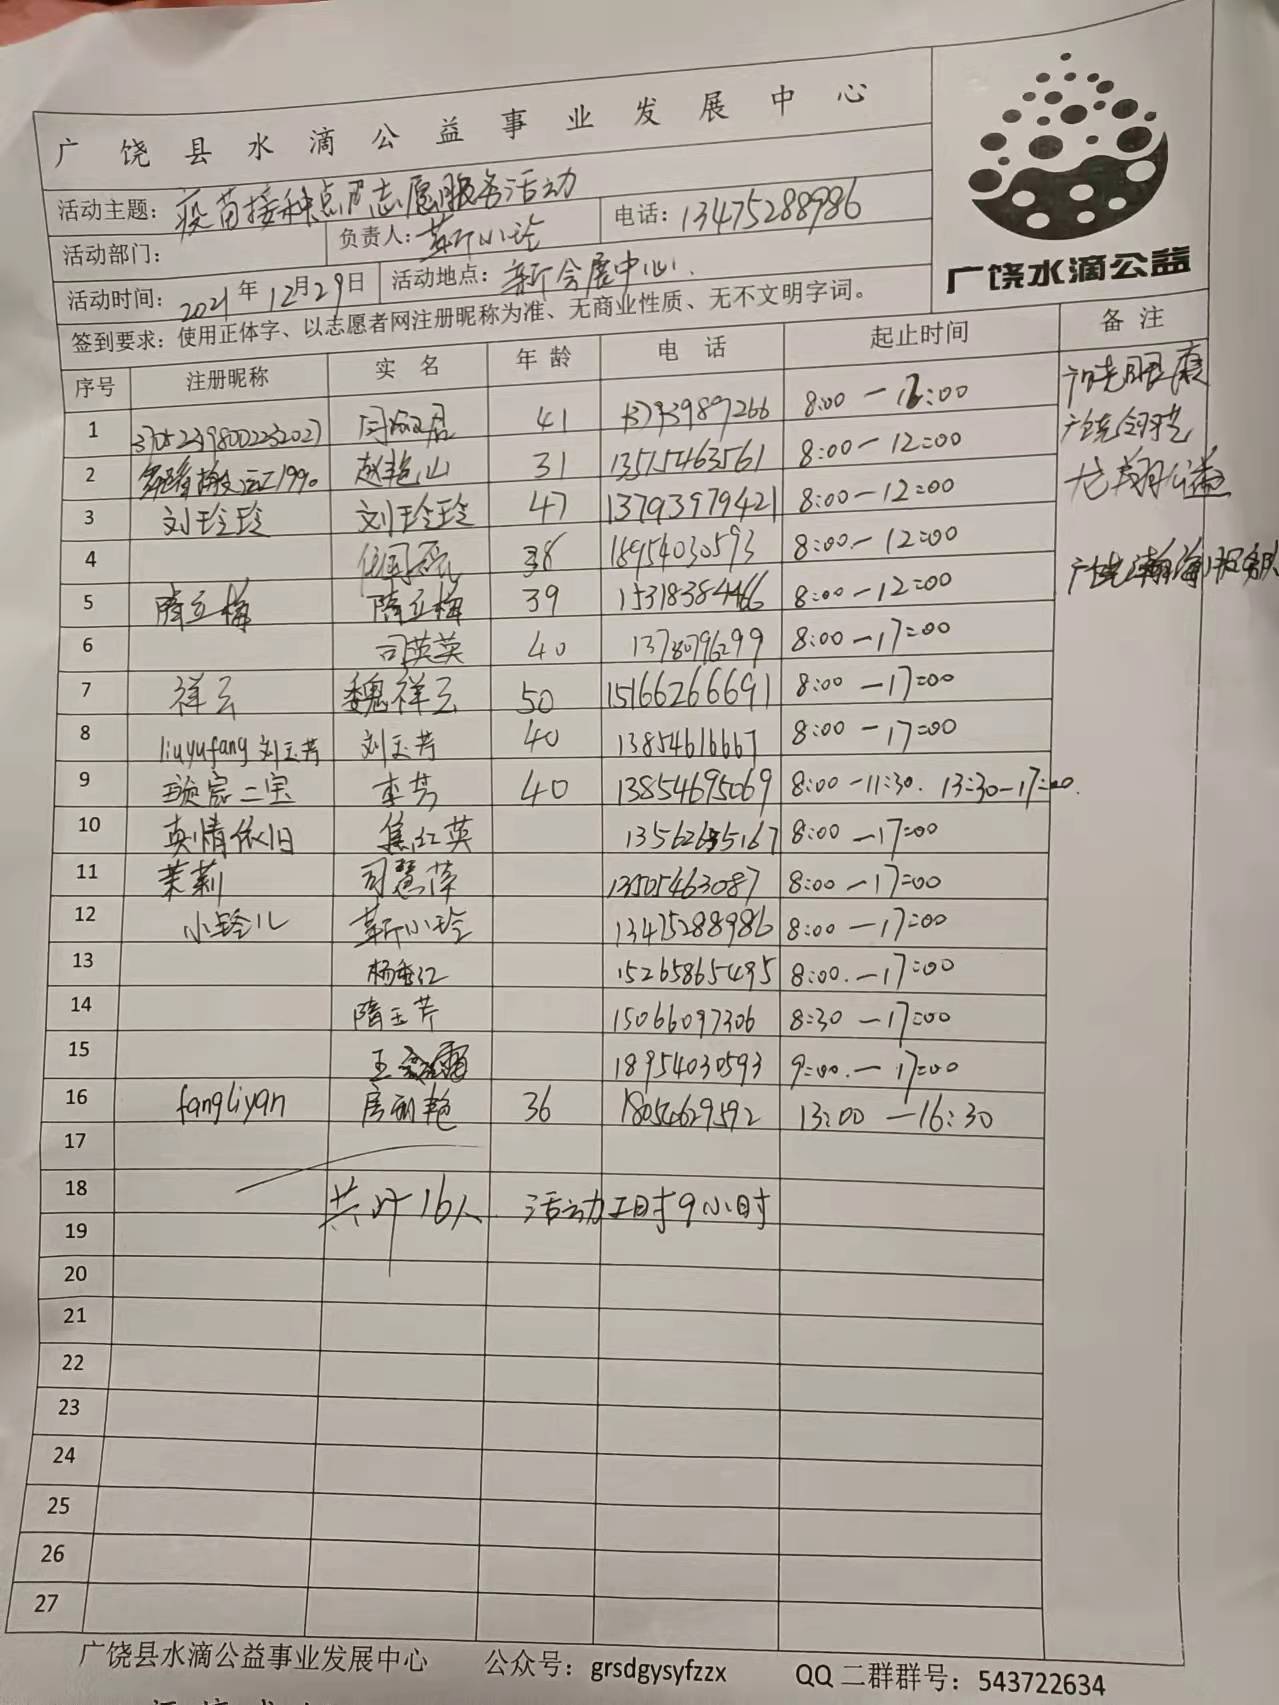 广饶县水滴公益事业发展中心
广饶水滴公益
活动主题：疫苗接种点志愿服务活动
活动部门： 负责人：靳小玲 电话：13475288986
活动时间：2021年12月29日 活动地点：新会展中心.
签到要求：使用正体字、以志愿者网注册昵称为准、无商业性质、无不文明字词。
序号 注册昵称 实名 年龄 电话 起止时间 备注
1 41 13793989266 8:00-12:00
2 赵艳山 31 13515463561 8:00-12:00
3 刘玲玲 刘玲玲 47 13793979421 8:00-12:00
4 38 18954030593 8:00-12:00
5 隋立梅 隋立梅 39 15318384466 8:00-12:00
6 司英英 40 13780796299 8:00-17:00
7 祥云 魏祥云 50 15166266691 8:00-17:00
8 liuyufang 刘玉芳 刘玉芳 40 13854616667 8:00-17:00
9 二宝 李芳 40 13854695069 8:00-11:30. 13:30-17:00.
10 真情依旧 焦红英 8:00-17:00
11 茉莉 司慧萍 13505463087 8:00-17:00
12 小铃儿 靳小玲 13475288986 8:00-17:00
13 杨香江 15265865495 8:00.-17:00
14 隋玉芹 15066097306 8:30-17:00
15 王 18954030593 9:00.-17:00
16 fangliyan 房利艳 36 18054629592 13:00-16:30
17
18 共计16人 活动工时9小时
19
20
21
22
23
24
25
26
27
广饶县水滴公益事业发展中心 公众号：grsdgysyfzzx QQ二群群号：543722634